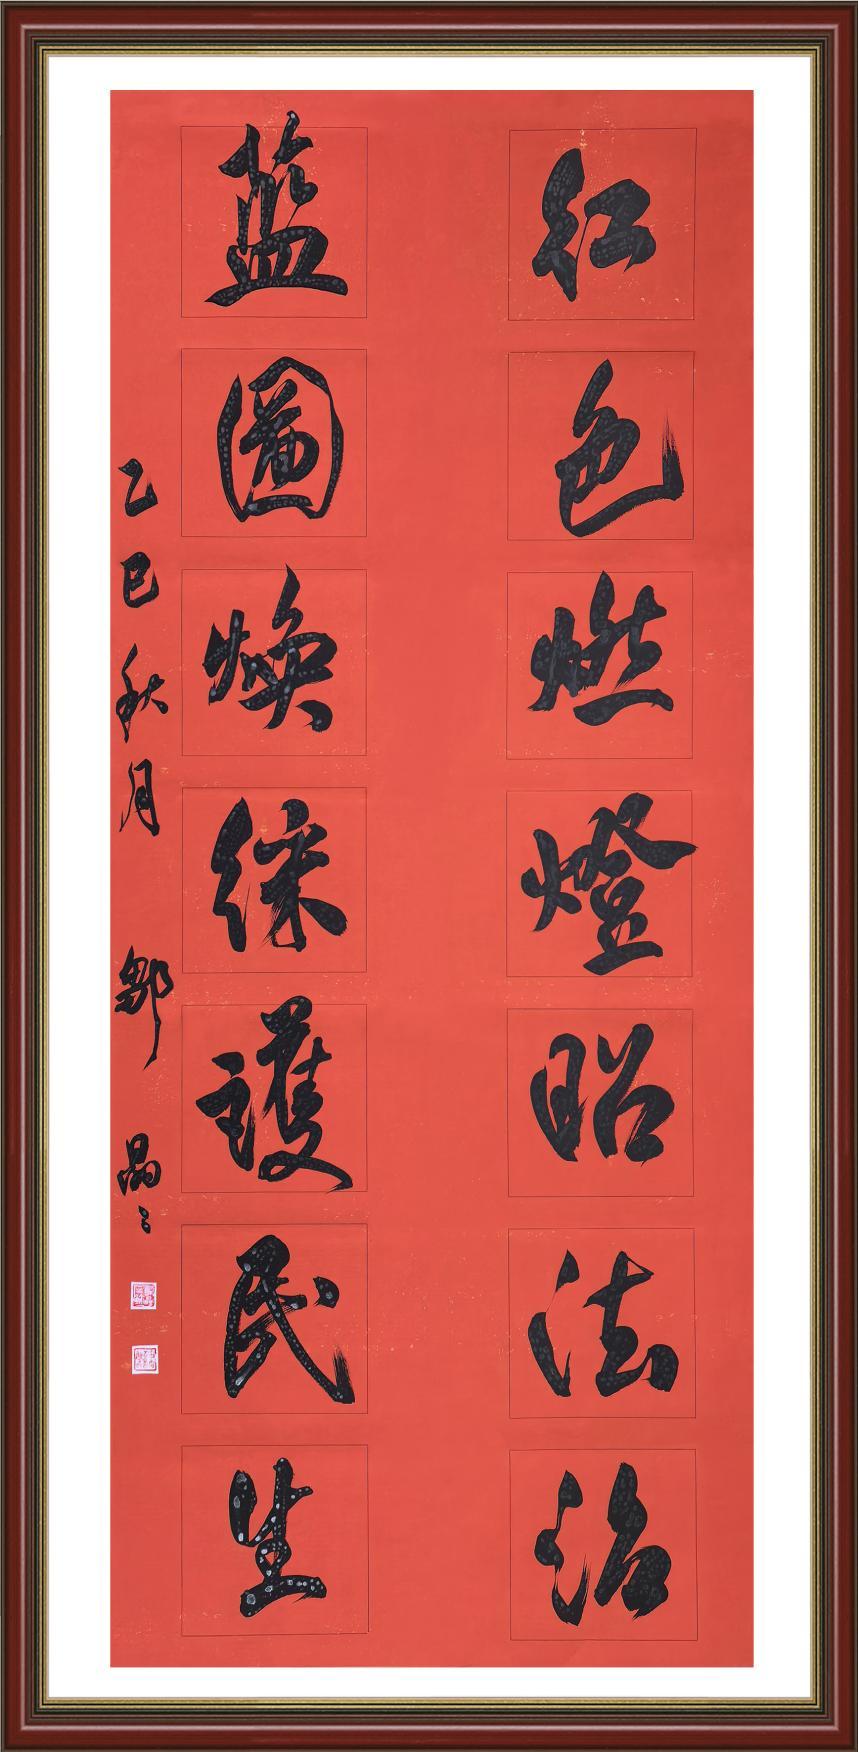 红色燃燈昭法治
蓝圖焕綵護民生
乙巳秋月 鄒晶〻